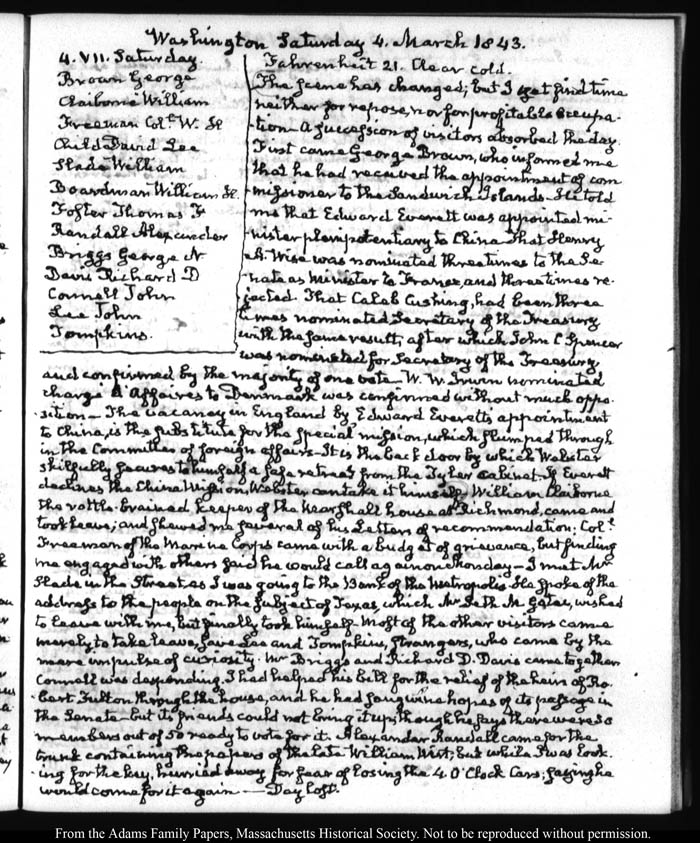 Washington Saturday 4. March 1843.
4. VII. Saturday.
Brown George
Claiborne William
Freeman Colt. W. H
Child David Lee
Slade William
Boardman William H.
Foster Thomas F
Randall Alexander
Briggs George N
Davis Richard D
Connell John
Lee John
Tompkins.
Fahrenheit 21. Clear cold.
The scene has changed; but I yet find time
neither for repose, nor for profitable occupa-
tion— A succession of visitors absorbed the day.
First came George Brown, who informed me
that he had received the appointment of com
missioner to the Sandwich Islands. He told
me that Edward Everett was appointed mi-
nister plenipotentiary to China That Henry
A. Wise was nominated three times to the Se-
nate as Minister to France, and three times re-
jected. That Caleb Cushing, had been three
times nominated Secretary of the Treasury
with the same result; after which John C Spencer
was nominated for Secretary of the Treasury,
and confirmed by the majority of one vote— W. W. Irwin nominated
chargé d'Affaires to Denmark was confirmed without much oppo-
sition— The vacancy in England by Edward Everett's appointment
to China, is the substitute for the special mission, which slumped through
in the Committee of foreign affairs— It is the back door by which Webster
skilfully secures to himself a safe retreat from the Tyler Cabinet. If Everett
declines the China Mission, Webster can take it himself. William Claiborne
the rattle-brained, keeper of the Marshall house at Richmond, came and
took leave; and shewed me several of his Letters of recommendation: Colt.
Freeman of the Marine Corps came with a budget of grievance, but finding
me engaged with others said he would call again on Monday— I met Mr
Slade in the Street as I was going to the Bank of the Metropolis. He spoke of the
address to the people on the subject of Texas, which Mr Seth M. Gates, wished
to leave with me, but finally took himself. Most of the other visitors came
merely to take leave, save Lee and Tompkins, strangers, who came by the
mere impulse of curiosity. Mr Briggs and Richard D. Davis came together
Connell was desponding. I had helped his bill for the relief of the heirs of Ro-
bert Fulton through the house, and he had sanguine hopes of its passage in
the Senate— but its friends could not bring it up, though he says there were 30
members out of 50 ready to vote for it. Alexander Randall came for the
trunk containing the papers of the late William Wirt; but while I was look-
ing for the key, hurried away for fear of losing the 4 O'Clock Cars; saying he
would come for it again —— Day lost.
From the Adams Family Papers, Massachusetts Historical Society. Not to be reproduced without permission.